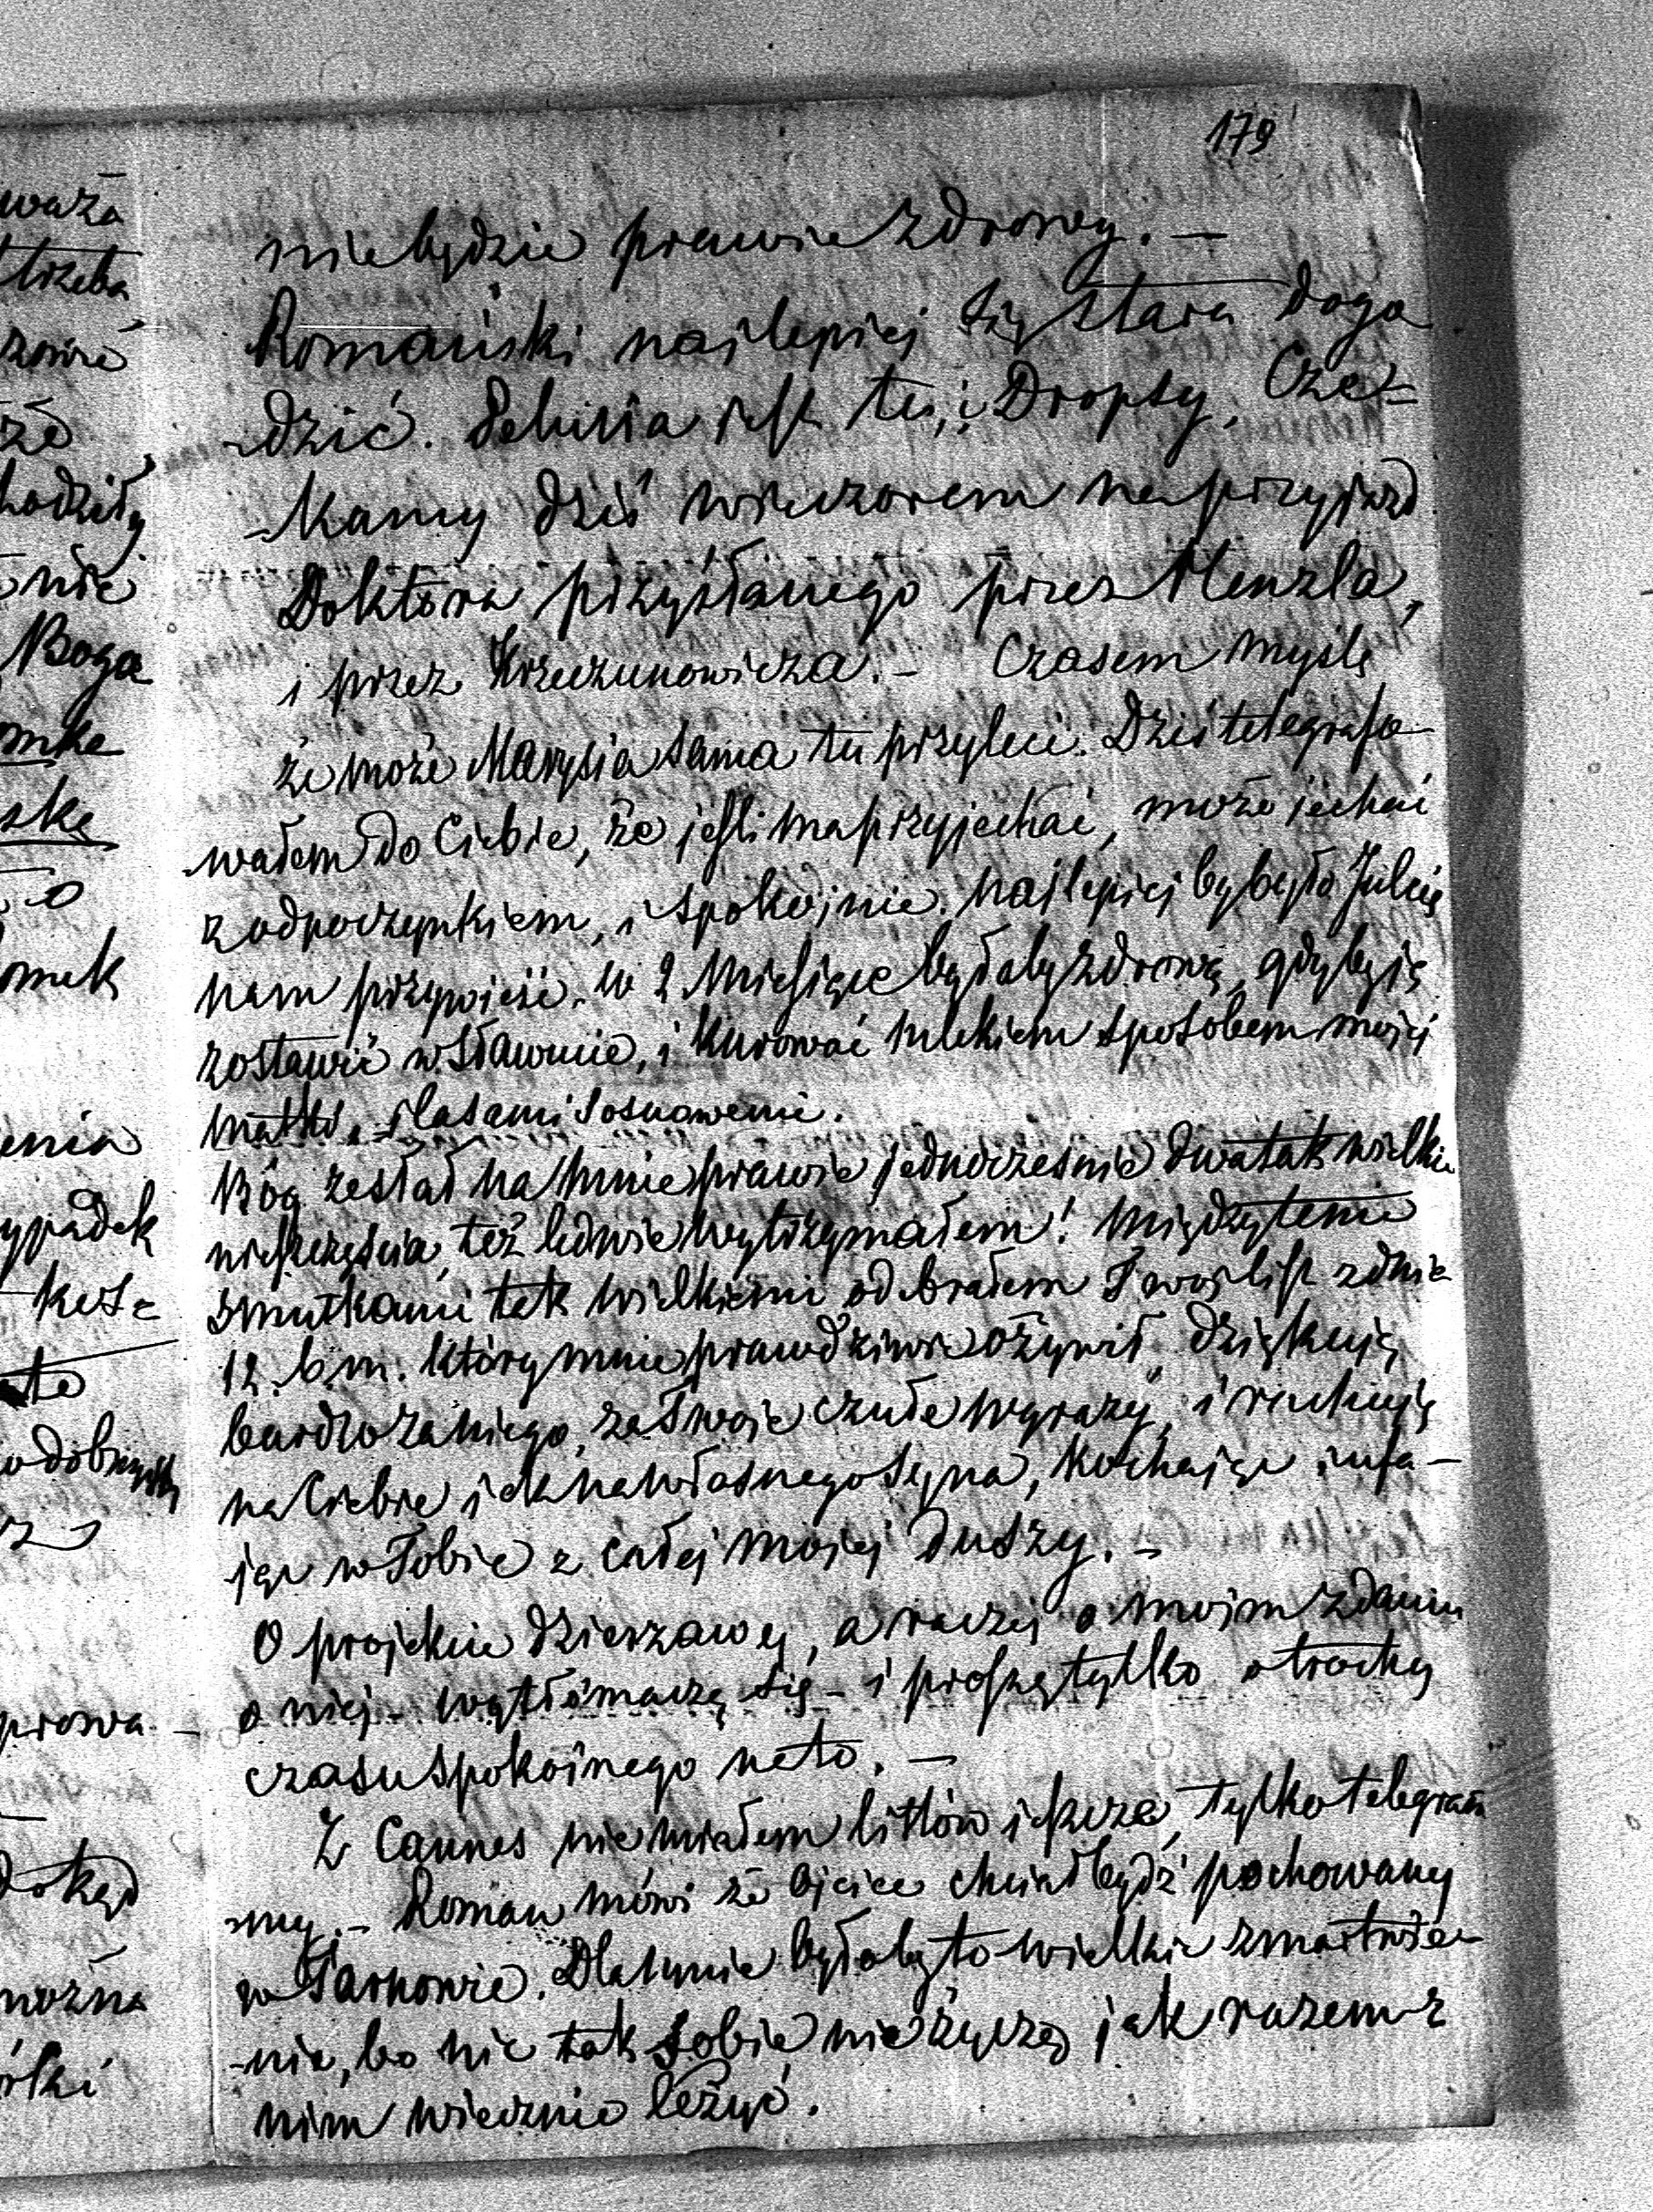 179
niebędzie prawie zdrowy. —
Romański najlepiej się stara doga
-dzić. jest tu, i Dropsy. Cze-
-kamy dziś wieczorem na przyjazd
Doktora przysłanego przez Menzla,
i przez Krzeczunowicza. — Czasem myślę
że może Marysia sama tu przyleci. Dziś telegrafo-
wałem do Ciebie, że jeśli ma przyjechać, może jechać
z odpoczynkiem, i spokojnie. Najlepiej by było Julcię
nam przywieść. W 2 miesiące byłaby zdrową, gdyby ją
zostawić w Sławucie, i kurować mlekiem sposobem mojej
matki, i lasami sosnowemi.
Bóg zesłał na mnie prawie jednocześnie dwa tak wielkie
nieszczęścia, też ledwie wytrzymałem! Między temi
smutkami tak wielkiemi odebrałem Twój list z dnia
12. b.m. który mnie prawdziwie ożywił, dziękuję
bardzo za niego, za Twoje czułe wyrazy, i rachuję
na Ciebie jak na własnego syna, kochając i ufa-
jąc w Tobie z całej mojej duszy. —
O projekcie dzierzawy, a raczej o moim zdaniu
o niej — wytłómaczę się — i proszę tylko o trochę
czasu spokojnego na to. —
Z Cannes nie miałem listów jeszcze, tylko telegram
-my. — Roman mówi że ojciec chciał bydź pochowany
w Tarnowie. Dla mnie byłoby to wielkie zmartwie-
-nie, bo nic tak sobie nie życzę jak razem z
nim wiecznie leżyć.
waża
trzeba
że
nic
Boga
ską
enia
ypadek
prowa -
można